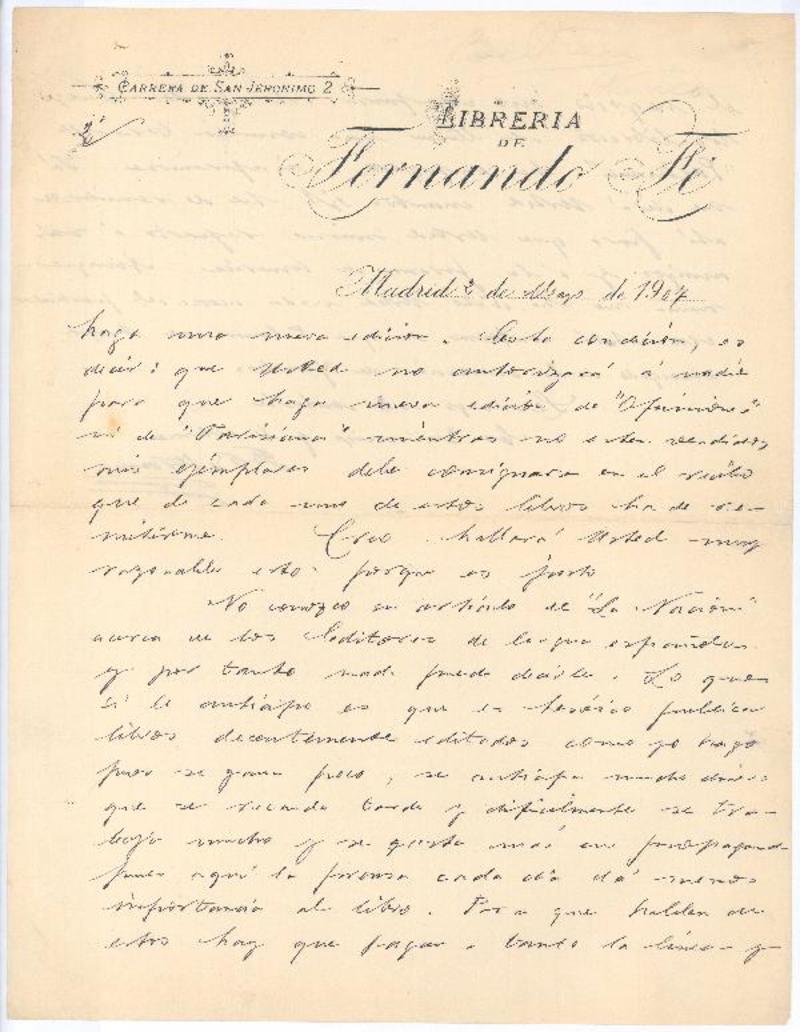 CARRERA DE SAN JERONIMO 2
2ª
LIBRERIA
DE
Fernando Fé
Madrid 2 de Mayo de 1907
haga una nueva edicion. Esta condición, es
decir: que Usted no autorizará á nadie
para que haga nueva edición de "Opiniones"
ni de "Parisiana" mientras no esten vendidos
mis ejemplares debe consignarse en el recibo
que de cada uno de estos libros ha de re-
mitirme. Creo hallará Usted muy
razonable esto porque es justo
No conozco su artículo de "La Nación"
acerca de los Editores de lengua española
y por tanto nada puedo decirle. Lo que
si le anticipo es que es heróico publicar
libros decentemente editados como yo hago
pues se gana poco, se anticipa mucho dinero
que se recauda tarde y dificilmente se tra-
baja mucho y se gasta más en propaganda
pues aquí la prensa cada día dá menos
importancia al libro. Para que hablen de
estos hay que pagar a tanto la linea y